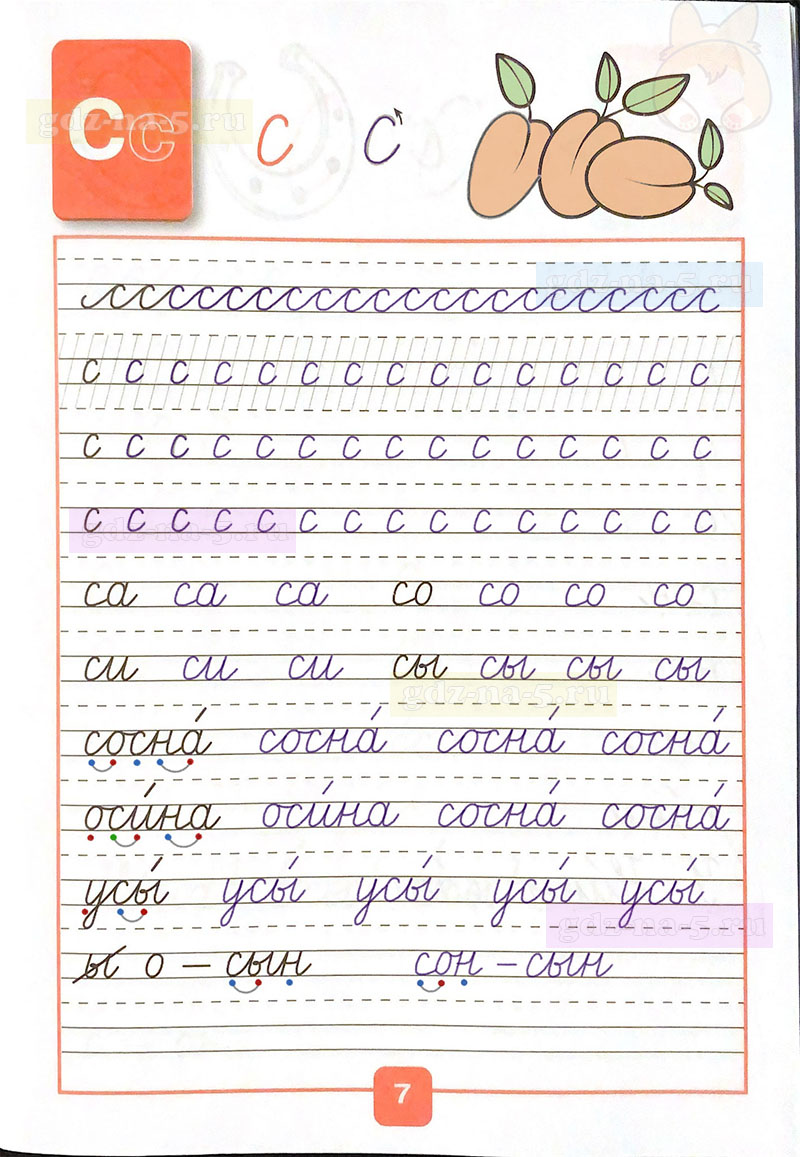 Сс с с
gdz-na-5.ru
gdz-na-5.ru
ссссссссссссссссссссс
с с с с с с с с с с с с с с с
с с с с с с с с с с с с с с с
с с с с с с с с с с с с с с с
gdz-na-5.ru
са са са со со со со
си си си сы сы сы сы
gdz-na-5.ru
сосна́ сосна́ сосна́ сосна́
оси́на оси́на сосна́ сосна́
усы́ усы́ усы́ усы́ усы́
gdz-na-5.ru
ы о – сын сон – сын
7